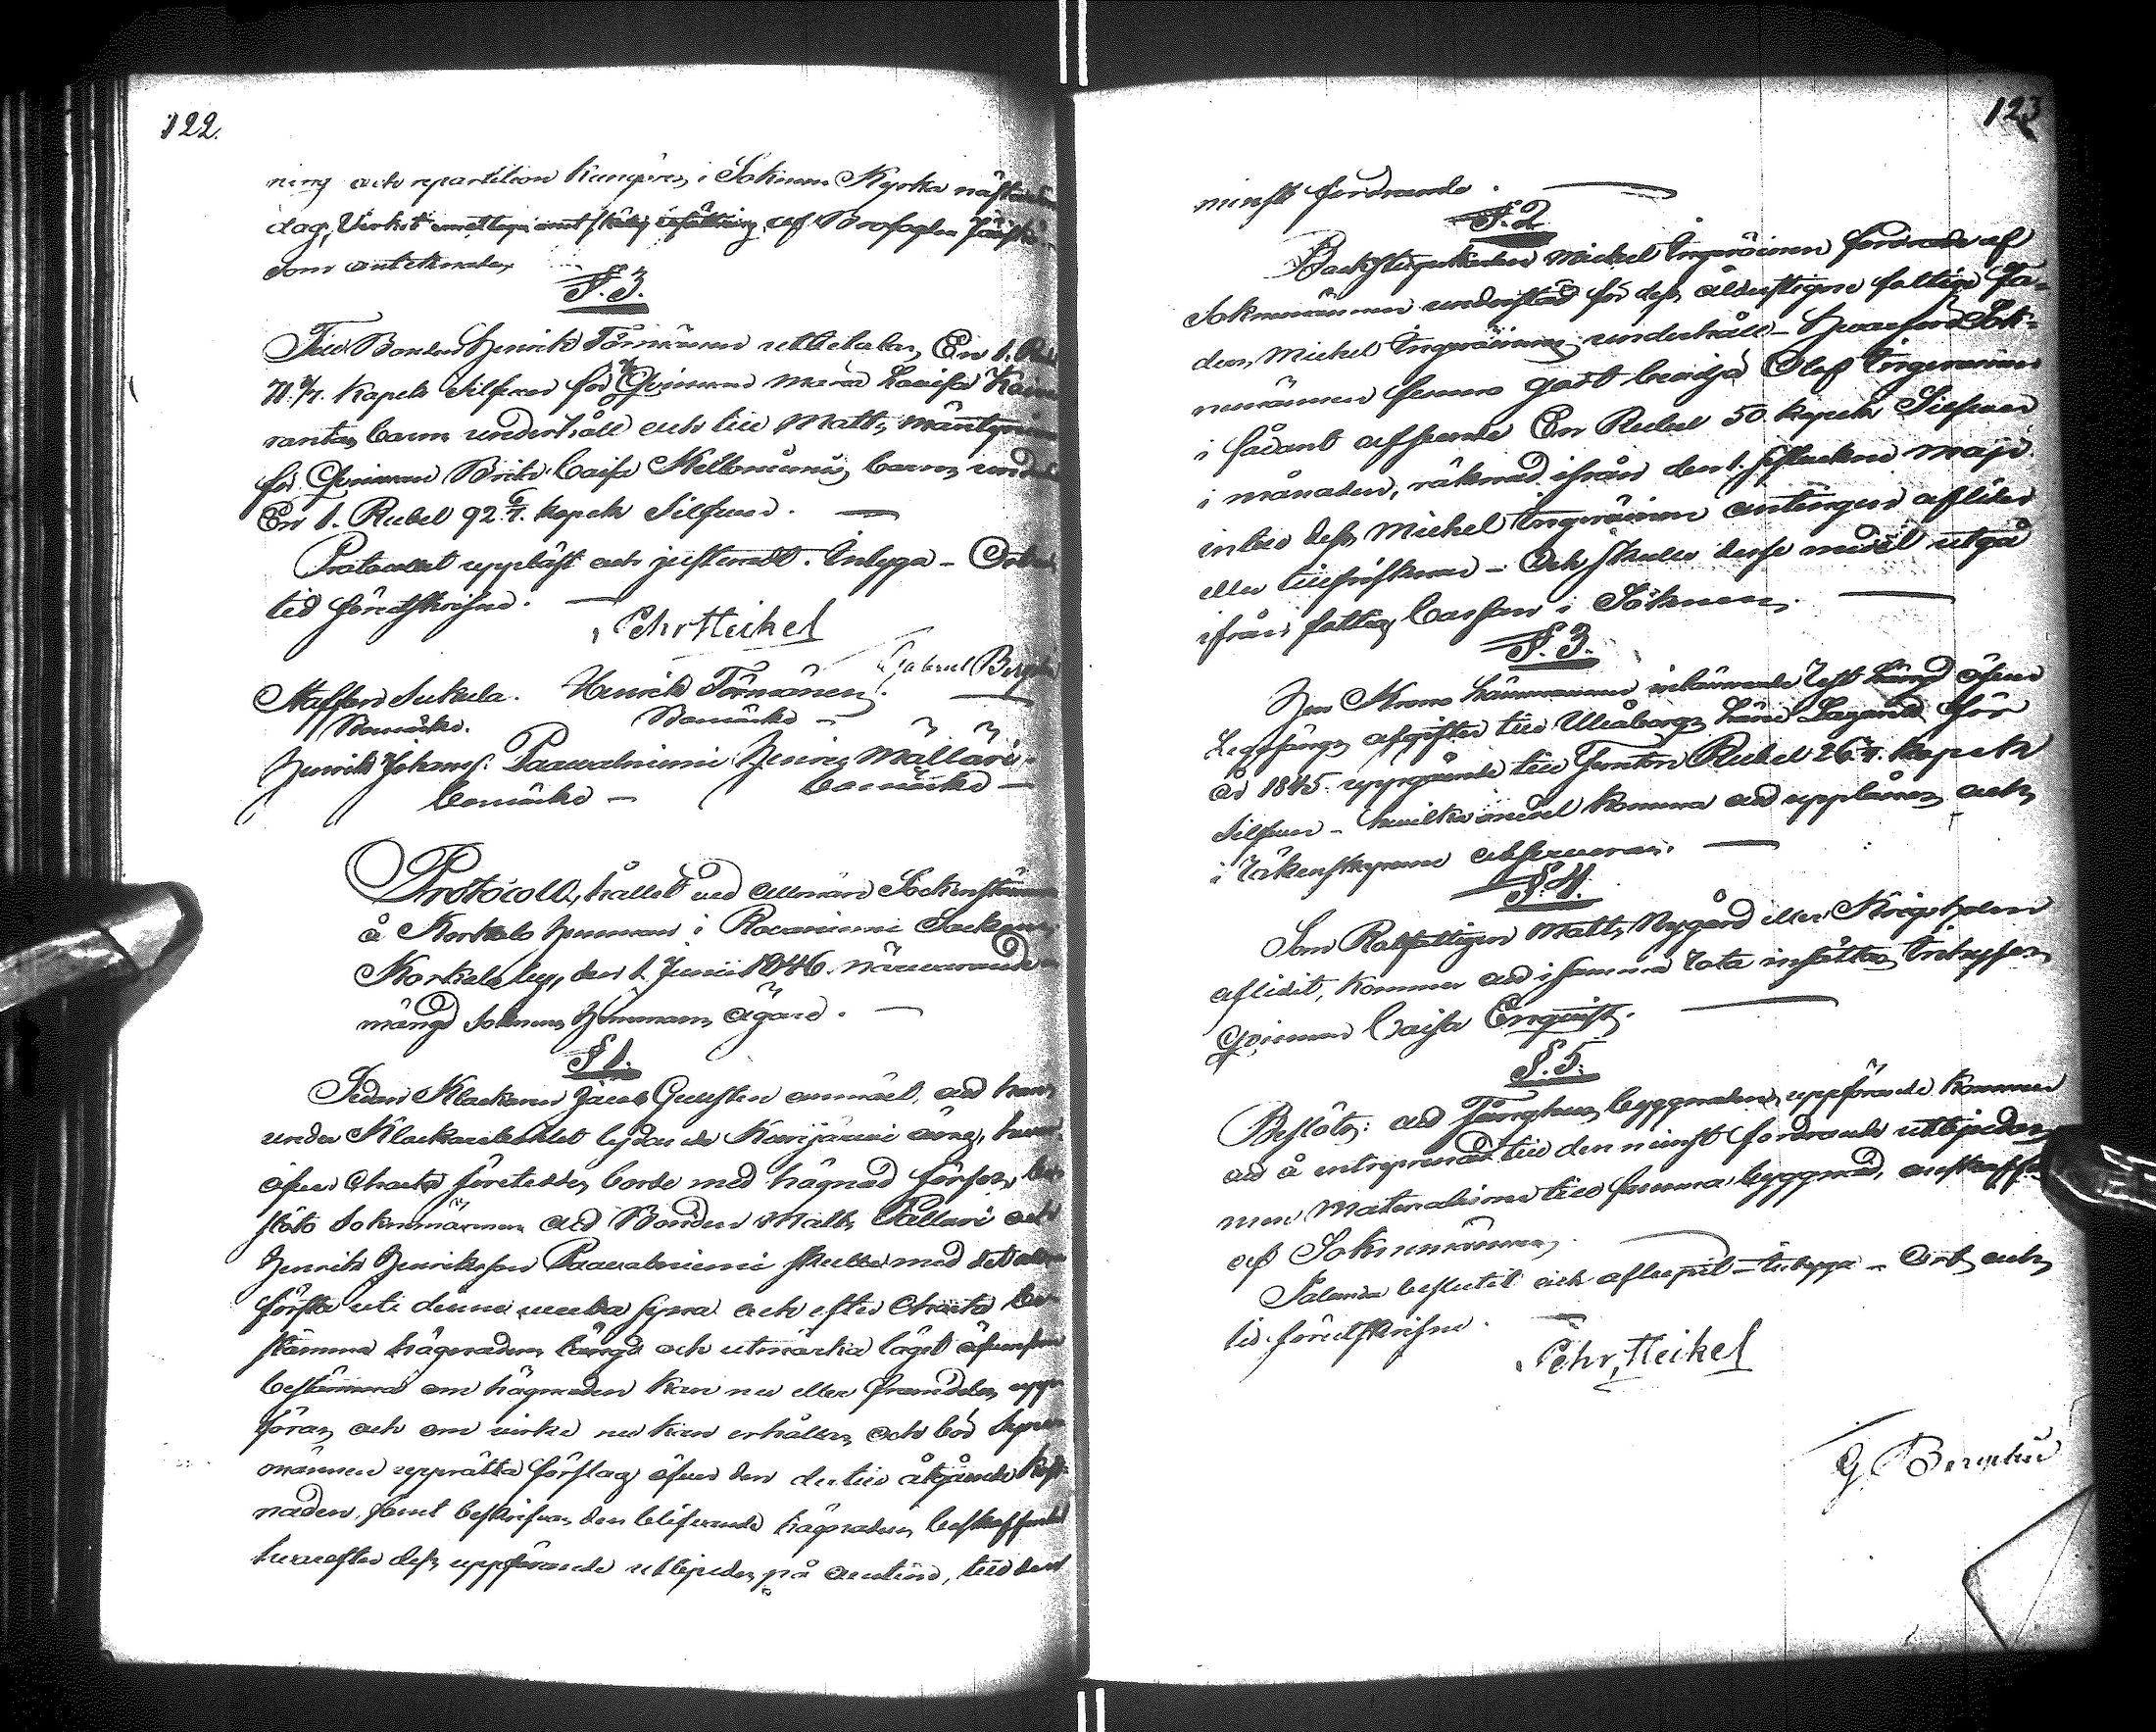 122.
ning och repartition kungöres i Soknens Kyrka nästa
dag, Virket af Brofogden
som antecknades
§. 3.
Till Bonden Henrik Törmänen utbetalas En S. Rub
71 3/7. kopek Silfver för Qvinnan Maria Lovisa
rantas barns underhåll och till Matts Mäntyniemi
för Qvinnan Brita Caisa barns under
En S. Rubel 92 6/7. kopek Silfver. —
Protocollet uppläst och justeradt. Intyga – Ort och
tid förutskrifne. —
Pehr Heikel
Gabriel
Staffan Sukula. Henrik Törmänen.
Bomärke. Bomärke —
Henrik Johanss. Paavalniemi Henric Mälläri
bomärke — bomärke —
Protocoll, hållet vid allmän Sockenstämma
å Korkalo hemman i Rovaniemi Socken
Korkalo by, den 1. Junii 1846. närvarande
mängd Soknens Hemmans ägare. —
§ 1.
Sedan Klockaren Jacob anmält, att han
under Klockarebohlet lydande äng, hvar
öfver Charta företeddes, borde med hägnad förses, be-
slöto Soknemännen att Bonden Matts Pallari och
Henrik Henriksson Paavalniemi skulle med det allra
första uti denna vecka syna och efter Charta be-
stämma hägnadens längd och utmärka läget äfvensom
bestämma om hägnaden kan nu eller framdeles upp-
föras, och om virke nu kan erhållas, och bör Syne
männen upprätta förslag öfver den dertill åtgående kost-
naden, samt beskrifva den blifvande hägnadens beskaffenhet
hvarefter dess uppförande utbjudes på auction, till den
123
minst fordrande. —
§. 2
Mickel Ingeröinen fordrade af
Soknemännen understöd för dess ålderstigne fattige fa-
der, Mickel Ingeröinens underhåll – hvarföre Sok-
nemännen funno godt bevilja Olof Ingeröinen
i sådant afseende En Rubel 50 kopek Silfver
i månaden, räknad ifrån den 1. sistluckne Maji
intill dess Mickel Ingeröinen antingen aflider
eller tillfrisknar – Och skulle desse medel utgå
ifrån fattig Cassan i Soknen. —
§. 3.
Hr Krono Länsmannen inlämnade Rest längd öfver
afgifter till Uleåborgs Läns Lazarett för
år 1845 uppgående till Femton Rubel 26 kopek
Silfver – hvilka medel komma att upplånas och
i räkenskaperne observeras. —
§. 4.
Som Rotfattigen Matts Nygård eller Krigsholm
aflidit, kommer att i samma Rota insättas Inhyses
Qvinnan Caisa Enquist. —
§. 5.
Beslöts: att Tinghus byggnadens uppförande kommer
att å entreprenad till den minst fordrande utbjudas
men Materialierne till samma byggnad, anskaffas
af Soknemännen.
Sålunda beslutit och aflupit – intyga – Ort och
tid förutskrifne. —
Pehr Heikel
G.